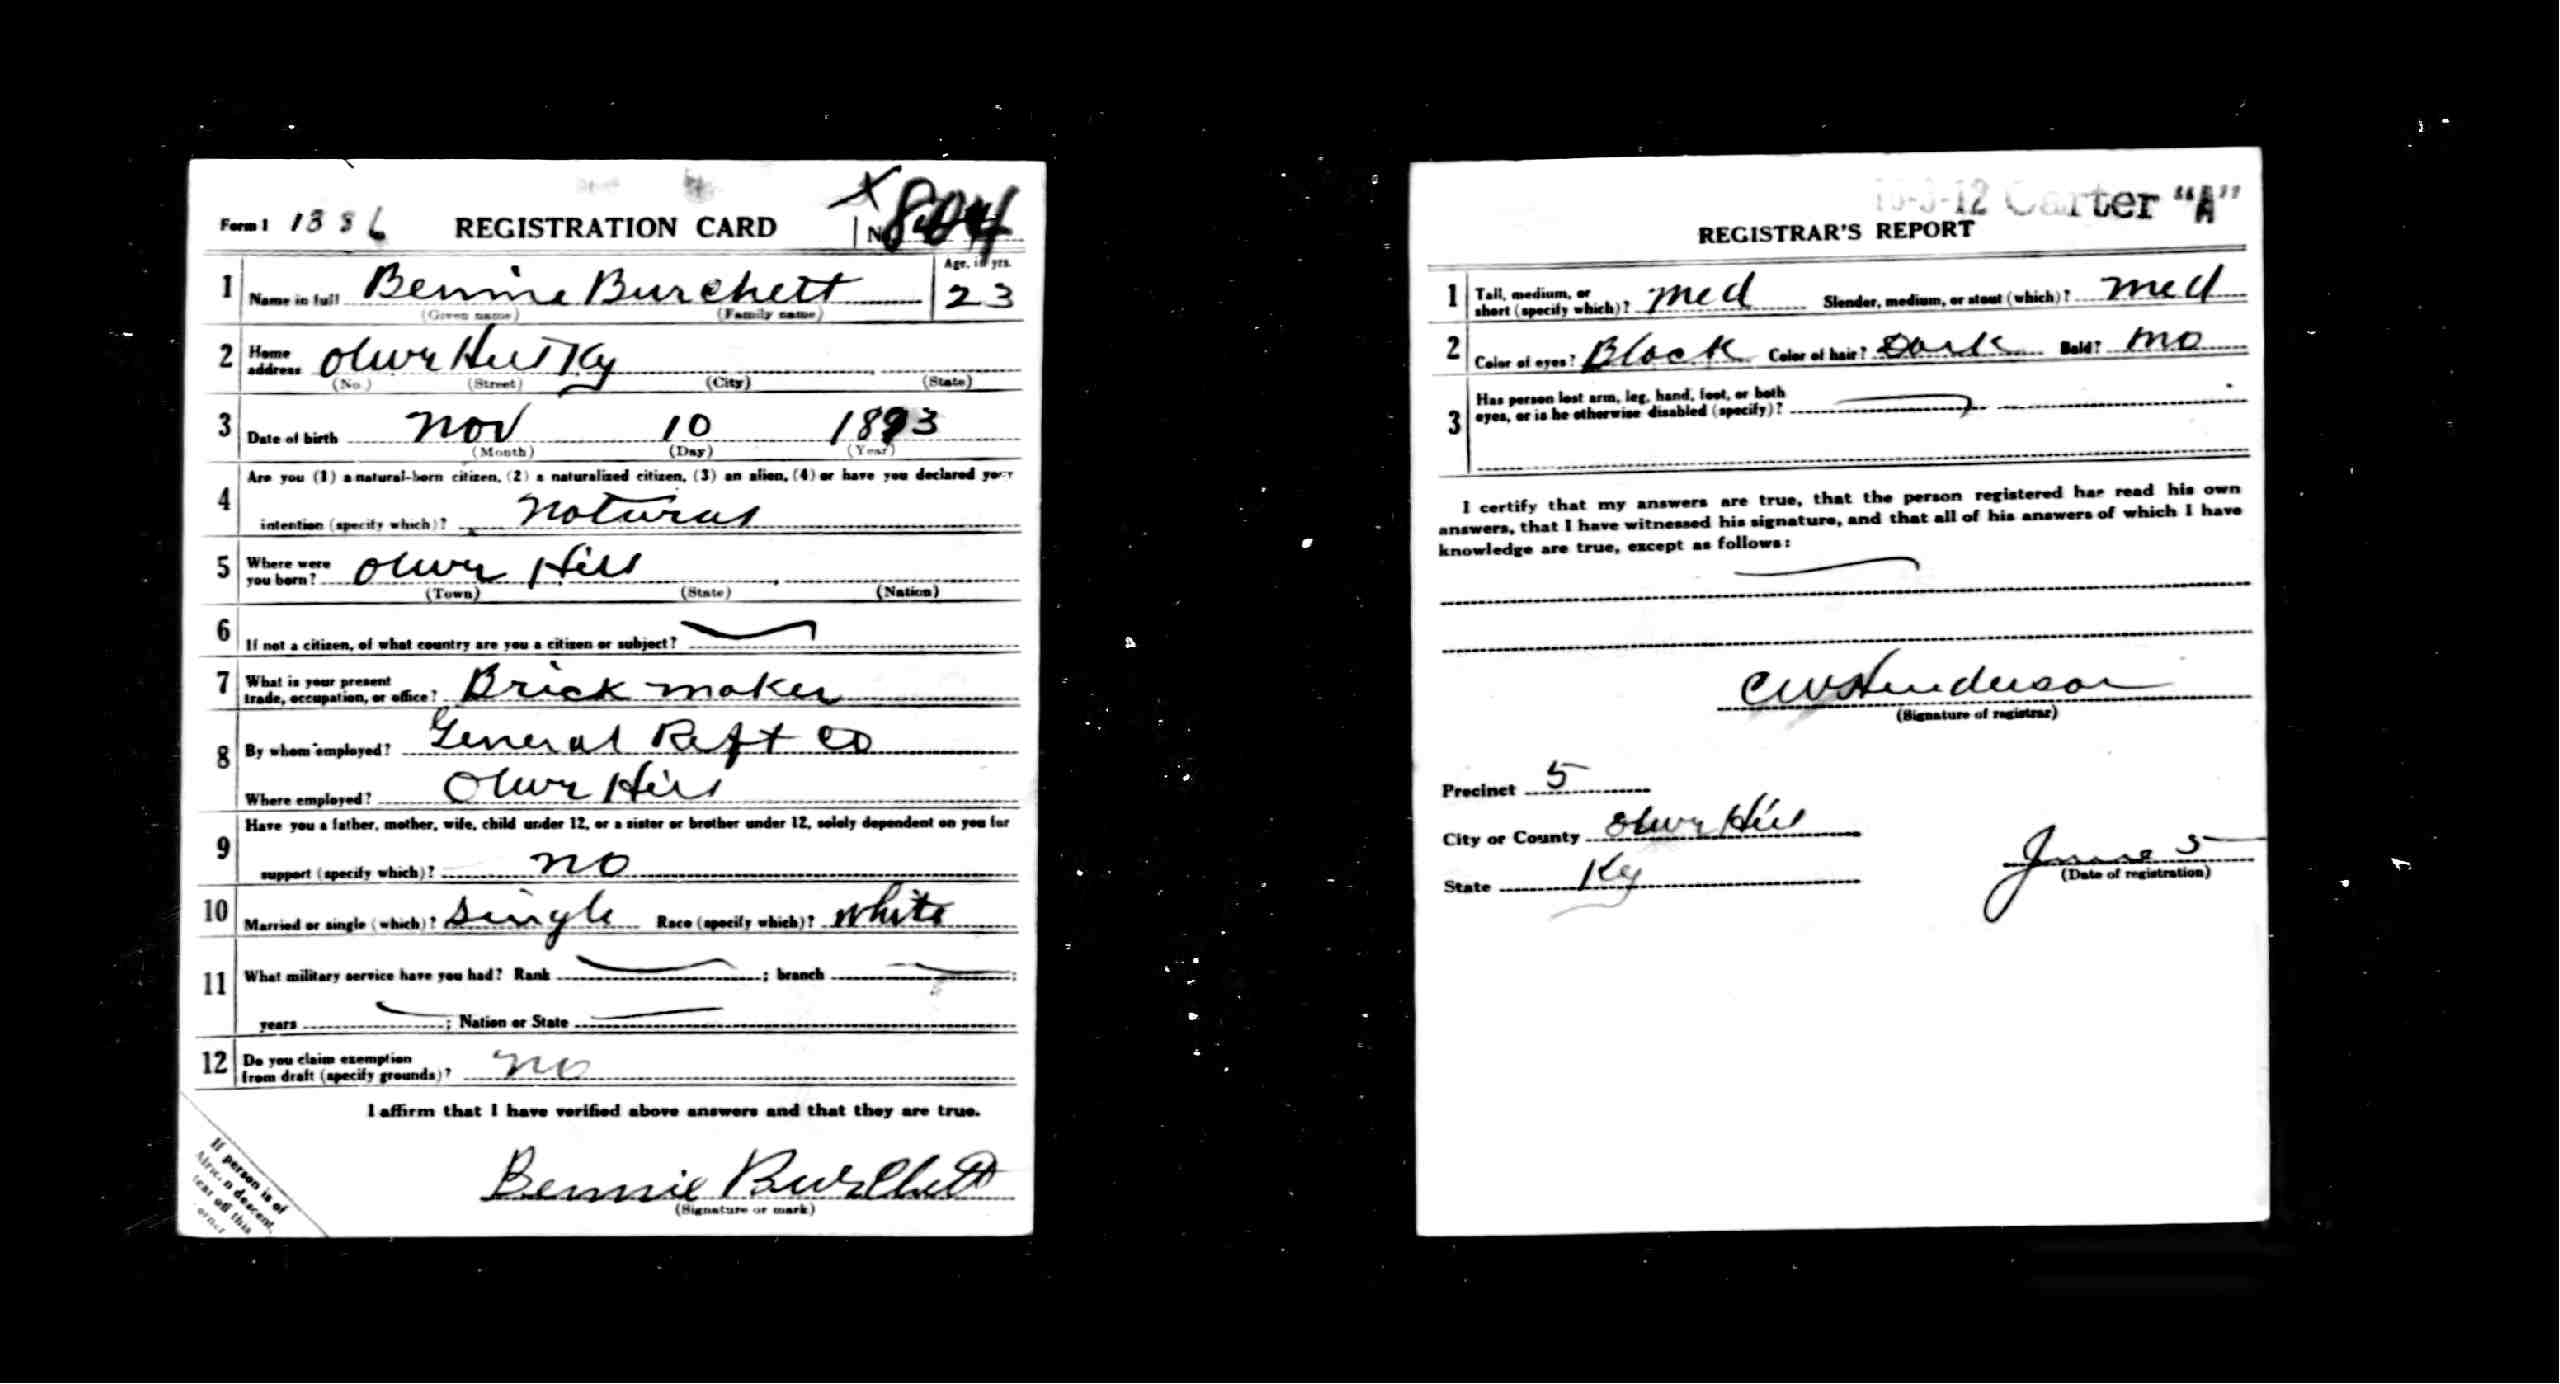 Form 1 1386 REGISTRATION CARD No. 804
Age, in yrs.
1 Name in full Bennie Burchett 23
(Given name) (Family name)
2 Home address Olive Hill Ky
(No.) (Street) (City) (State)
3 Date of birth Nov 10 1893
(Month) (Day) (Year)
Are you (1) a natural-born citizen, (2) a naturalized citizen, (3) an alien, (4) or have you declared your
4 intention (specify which)? Natural
5 Where were you born? Olive Hill
(Town) (State) (Nation)
6 If not a citizen, of what country are you a citizen or subject?
7 What is your present trade, occupation, or office? Brick maker
8 By whom employed? General Reft Co
Where employed? Olive Hill
Have you a father, mother, wife, child under 12, or a sister or brother under 12, solely dependent on you for
9 support (specify which)? no
10 Married or single (which)? Single Race (specify which)? White
11 What military service have you had? Rank ; branch ;
years ; Nation or State
12 Do you claim exemption from draft (specify grounds)? no
I affirm that I have verified above answers and that they are true.
Bennie Burchett
(Signature or mark)
If person is of
African descent,
tear off this
corner
16-3-12 Carter "A"
REGISTRAR'S REPORT
1 Tall, medium, or short (specify which)? med Slender, medium, or stout (which)? med
2 Color of eyes? Black Color of hair? Dark Bald? no
3 Has person lost arm, leg, hand, foot, or both
eyes, or is he otherwise disabled (specify)?
I certify that my answers are true, that the person registered has read his own
answers, that I have witnessed his signature, and that all of his answers of which I have
knowledge are true, except as follows:
CW Henderson
(Signature of registrar)
Precinct 5
City or County Olive Hill
State Ky
June 5
(Date of registration)